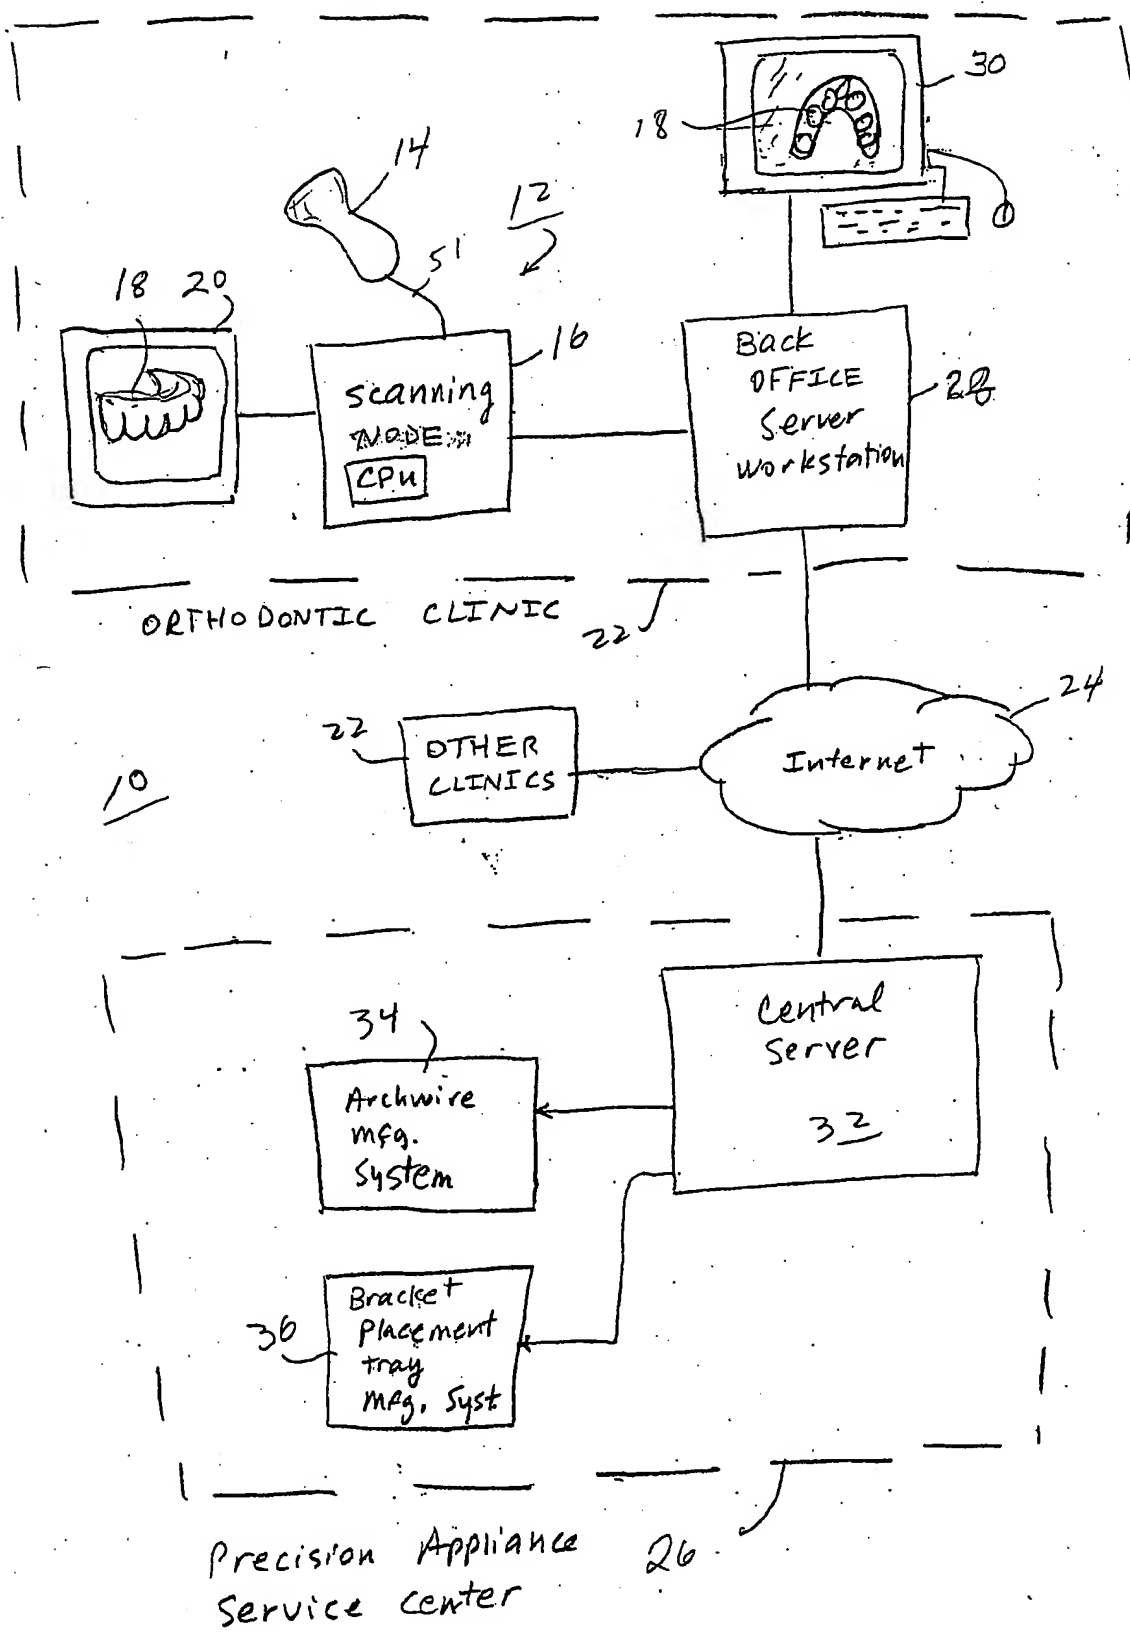 30
18
14
12
51
18 20
16
Back
OFFICE
Server
Workstation
28
Scanning
NODE
CPU
ORTHODONTIC CLINIC
22
24
22
OTHER
CLINICS
Internet
10
Central
Server
32
34
Archwire
mfg.
System
36
Bracket
Placement
tray
mfg. Syst
Precision Appliance
Service Center
26